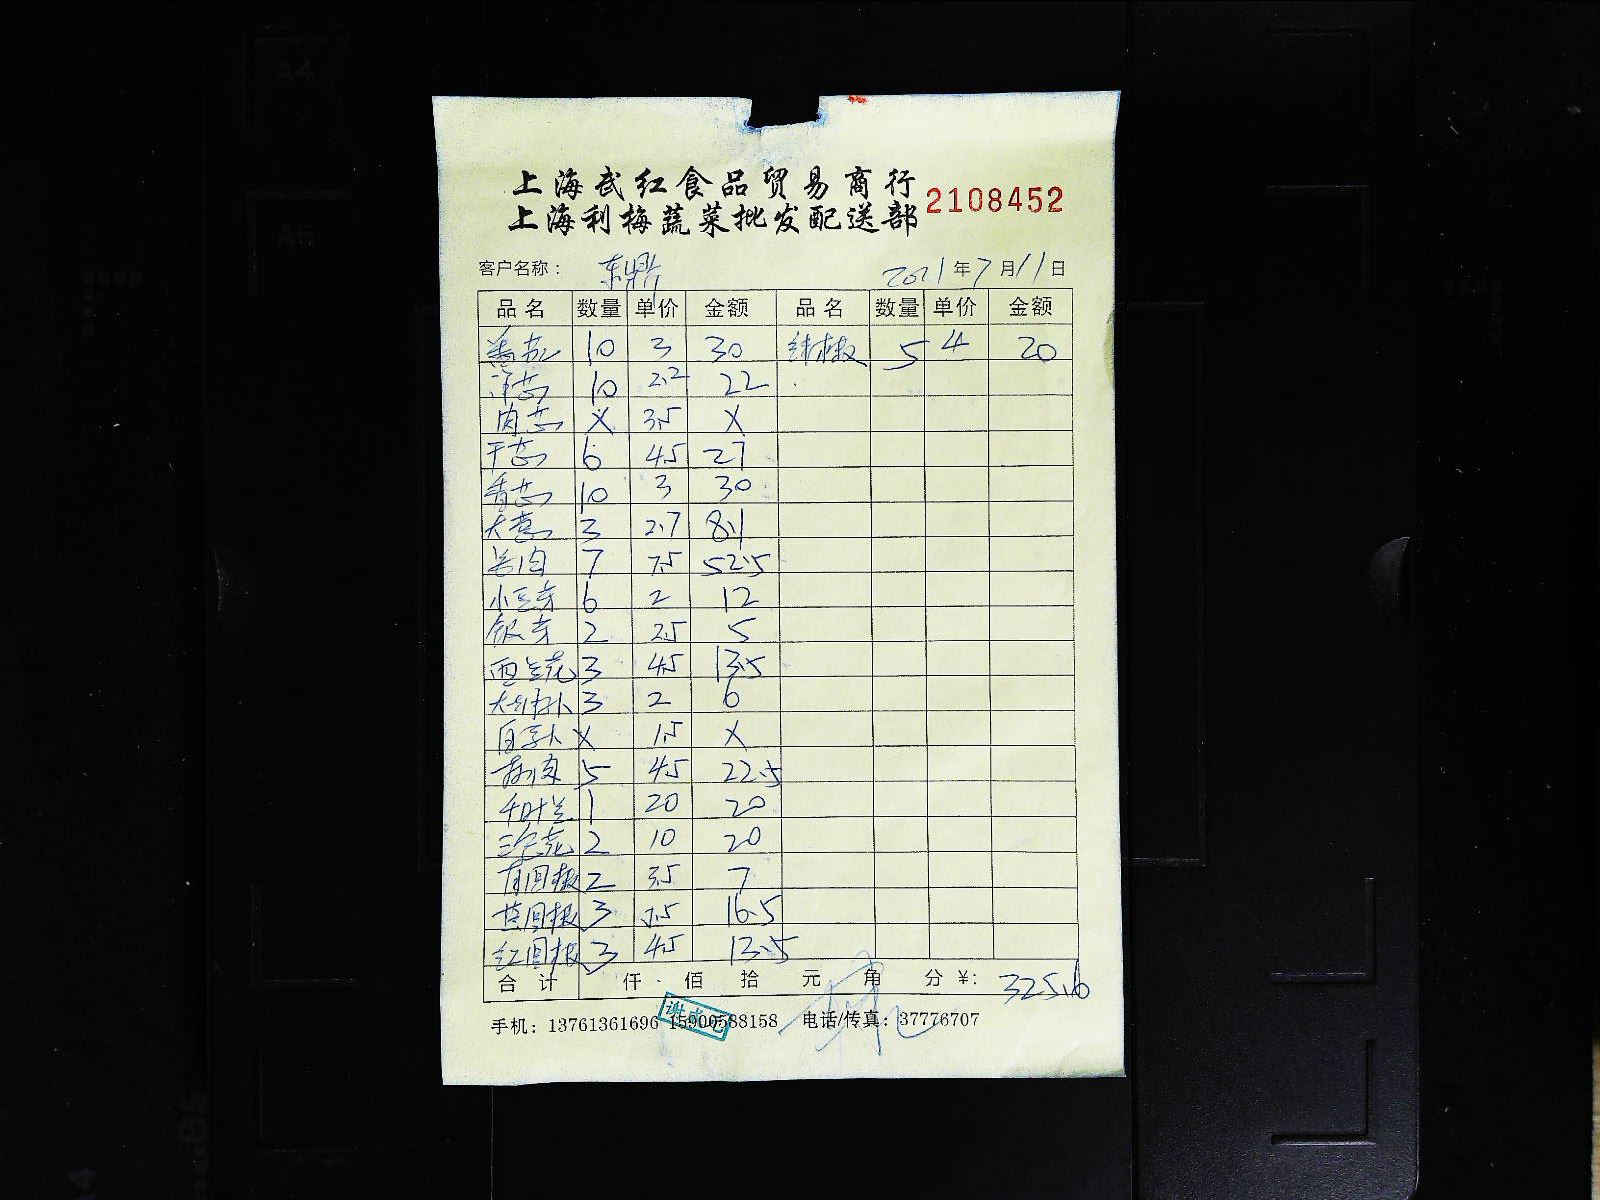 上海武红食品贸易商行
上海利梅蔬菜批发配送部 2108452
客户名称： 东鼎 2021年7月11日
品名 数量 单价 金额 品名 数量 单价 金额
番茄 10 3 30 5 4 20
洋芯 10 2.2 22
肉芯 X 3.5 X
干芯 6 4.5 27
香芯 10 3 30
3 2.7 8.1
7 7.5 52.5
小豆芽 6 2 12
银芽 2 2.5 5
西兰花 3 4.5 13.5
3 2 6
白萝卜 X 1.5 X
5 4.5 22.5
千叶兰 1 20 20
三色花 2 10 20
青圆椒 2 3.5 7
黄圆椒 3 5.5 16.5
红圆椒 3 4.5 13.5
合计 仟 佰 拾 元 角 分 ¥: 325.6
手机：13761361696 15900588158 电话/传真：37776707